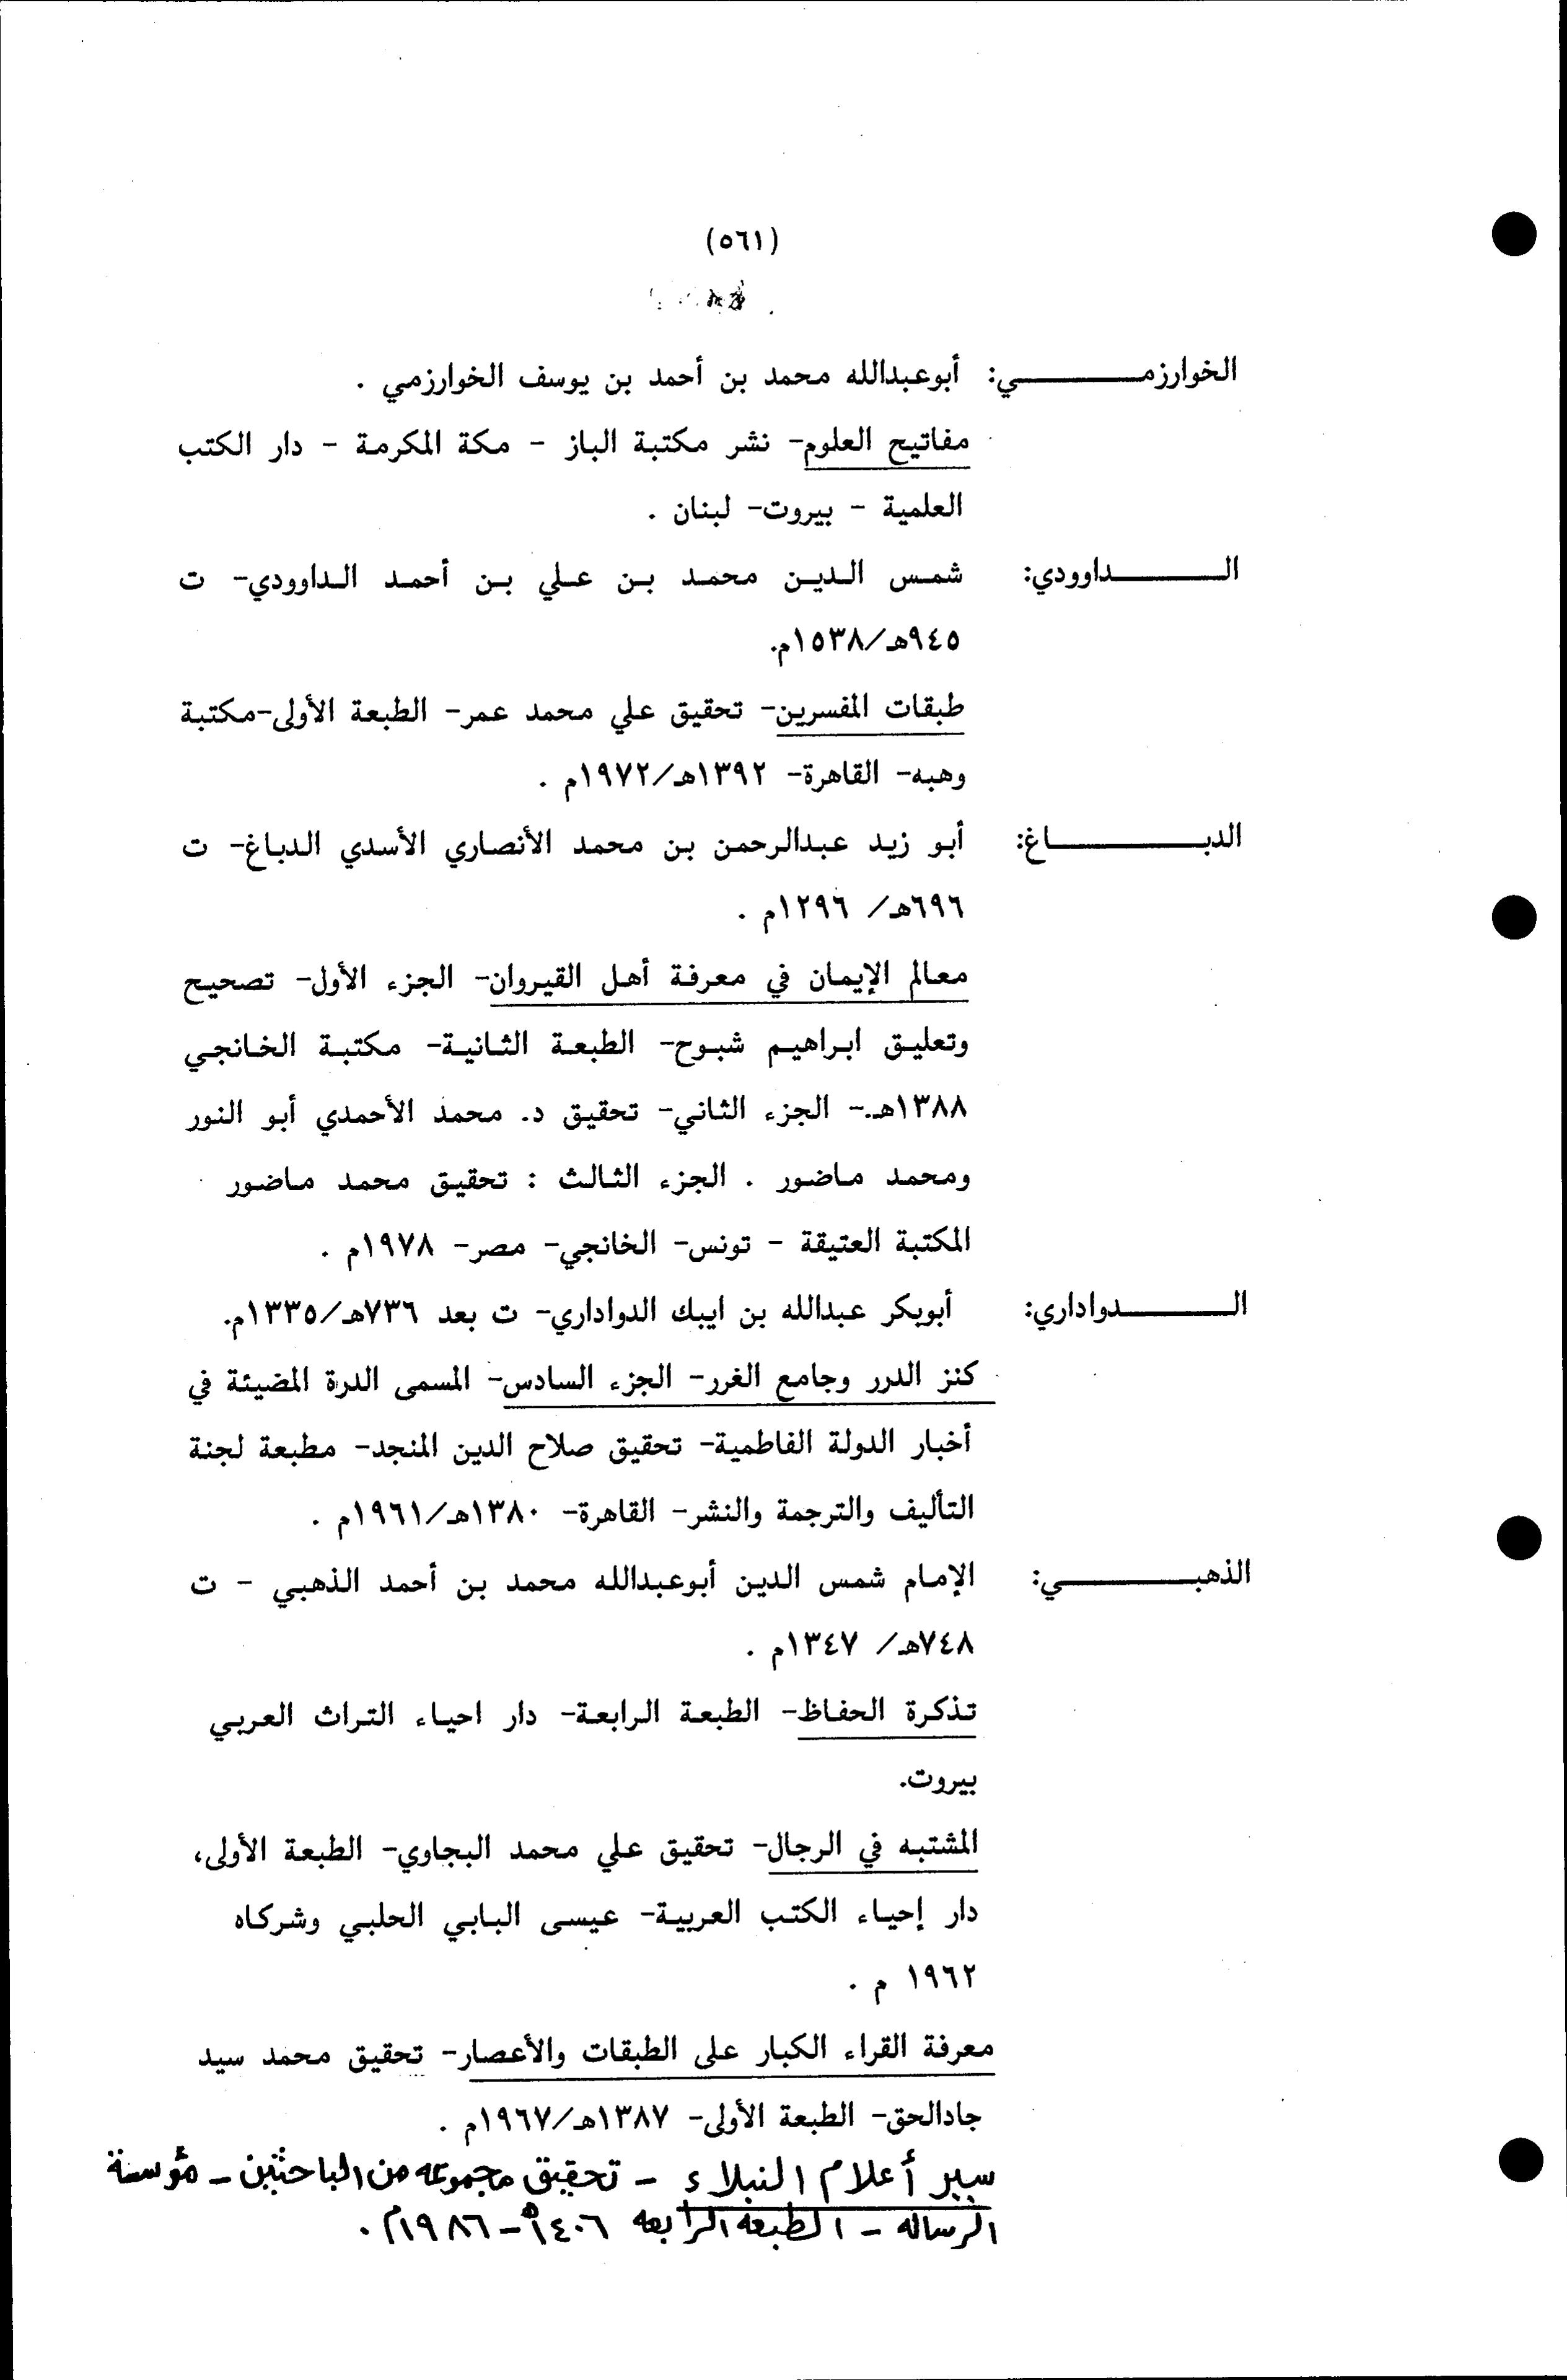 (٥٦١)
الخوارزمــــــي: أبوعبدالله محمد بن أحمد بن يوسف الخوارزمي .
مفاتيح العلوم- نشر مكتبة الباز - مكة المكرمة - دار الكتب
العلمية - بيروت- لبنان .
الــــــــداوودي: شمس الدين محمد بن علي بن أحمد الداوودي- ت
٩٤٥هـ/١٥٣٨م.
طبقات المفسرين- تحقيق علي محمد عمر- الطبعة الأولى-مكتبة
وهبه- القاهرة- ١٣٩٢هـ/١٩٧٢م .
الدبــــــــــاغ: أبو زيد عبدالرحمن بن محمد الأنصاري الأسدي الدباغ- ت
٦٩٦هـ/ ١٢٩٦م .
معالم الإيمان في معرفة أهل القيروان- الجزء الأول- تصحيح
وتعليق ابراهيم شبوح- الطبعة الثانية- مكتبة الخانجي
١٣٨٨هـ.- الجزء الثاني- تحقيق د. محمد الأحمدي أبو النور
ومحمد ماضور . الجزء الثالث : تحقيق محمد ماضور
المكتبة العتيقة - تونس- الخانجي- مصر- ١٩٧٨م .
الــــــــدواداري: أبوبكر عبدالله بن ايبك الدواداري- ت بعد ٧٣٦هـ/١٣٣٥م.
كنز الدرر وجامع الغرر- الجزء السادس- المسمى الدرة المضيئة في
أخبار الدولة الفاطمية- تحقيق صلاح الدين المنجد- مطبعة لجنة
التأليف والترجمة والنشر- القاهرة- ١٣٨٠هـ/١٩٦١م .
الذهبــــــــــي: الإمام شمس الدين أبوعبدالله محمد بن أحمد الذهبي - ت
٧٤٨هـ/ ١٣٤٧م .
تذكرة الحفاظ- الطبعة الرابعة- دار احياء التراث العربي
بيروت.
المشتبه في الرجال- تحقيق علي محمد البجاوي- الطبعة الأولى،
دار إحياء الكتب العربية- عيسى البابي الحلبي وشركاه
١٩٦٢ م .
معرفة القراء الكبار على الطبقات والأعصار- تحقيق محمد سيد
جادالحق- الطبعة الأولى- ١٣٨٧هـ/١٩٦٧م .
سير أعلام النبلاء - تحقيق مجموعه من الباحثين - مؤسسة
الرساله - الطبعه الرابعه ١٤٠٦هـ - ١٩٨٦م .